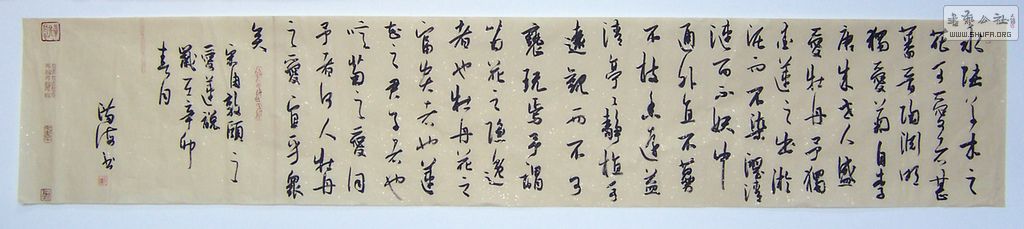 水陸草木之
花可愛者甚
蕃晉陶淵明
獨愛菊自李
唐來世人盛
愛牡丹予獨
愛蓮之出淤
泥而不染濯清
漣而不妖中
通外直不蔓
不枝香遠益
清亭亭静植可
遠觀而不可
褻玩焉予謂
菊花之隱逸
者也牡丹花之
富貴者也蓮
花之君子者也
噫菊之愛同
予者何人牡丹
之愛宜乎眾
矣
宋周敦頤之
愛蓮說
歲在辛卯
春月
海書
书法公社
WWW.SHUFA.ORG